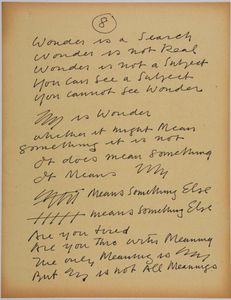 8
Wonder is a Search
Wonder is not Real
Wonder is not a Subject
You can See a Subject
You cannot See Wonder
is Wonder
whether it might Mean
something it is not
It does mean something
It Means
Means Something Else
means Something Else
Are you tired
Are you Thro with Meaning
The only Meaning is
But is not All Meanings